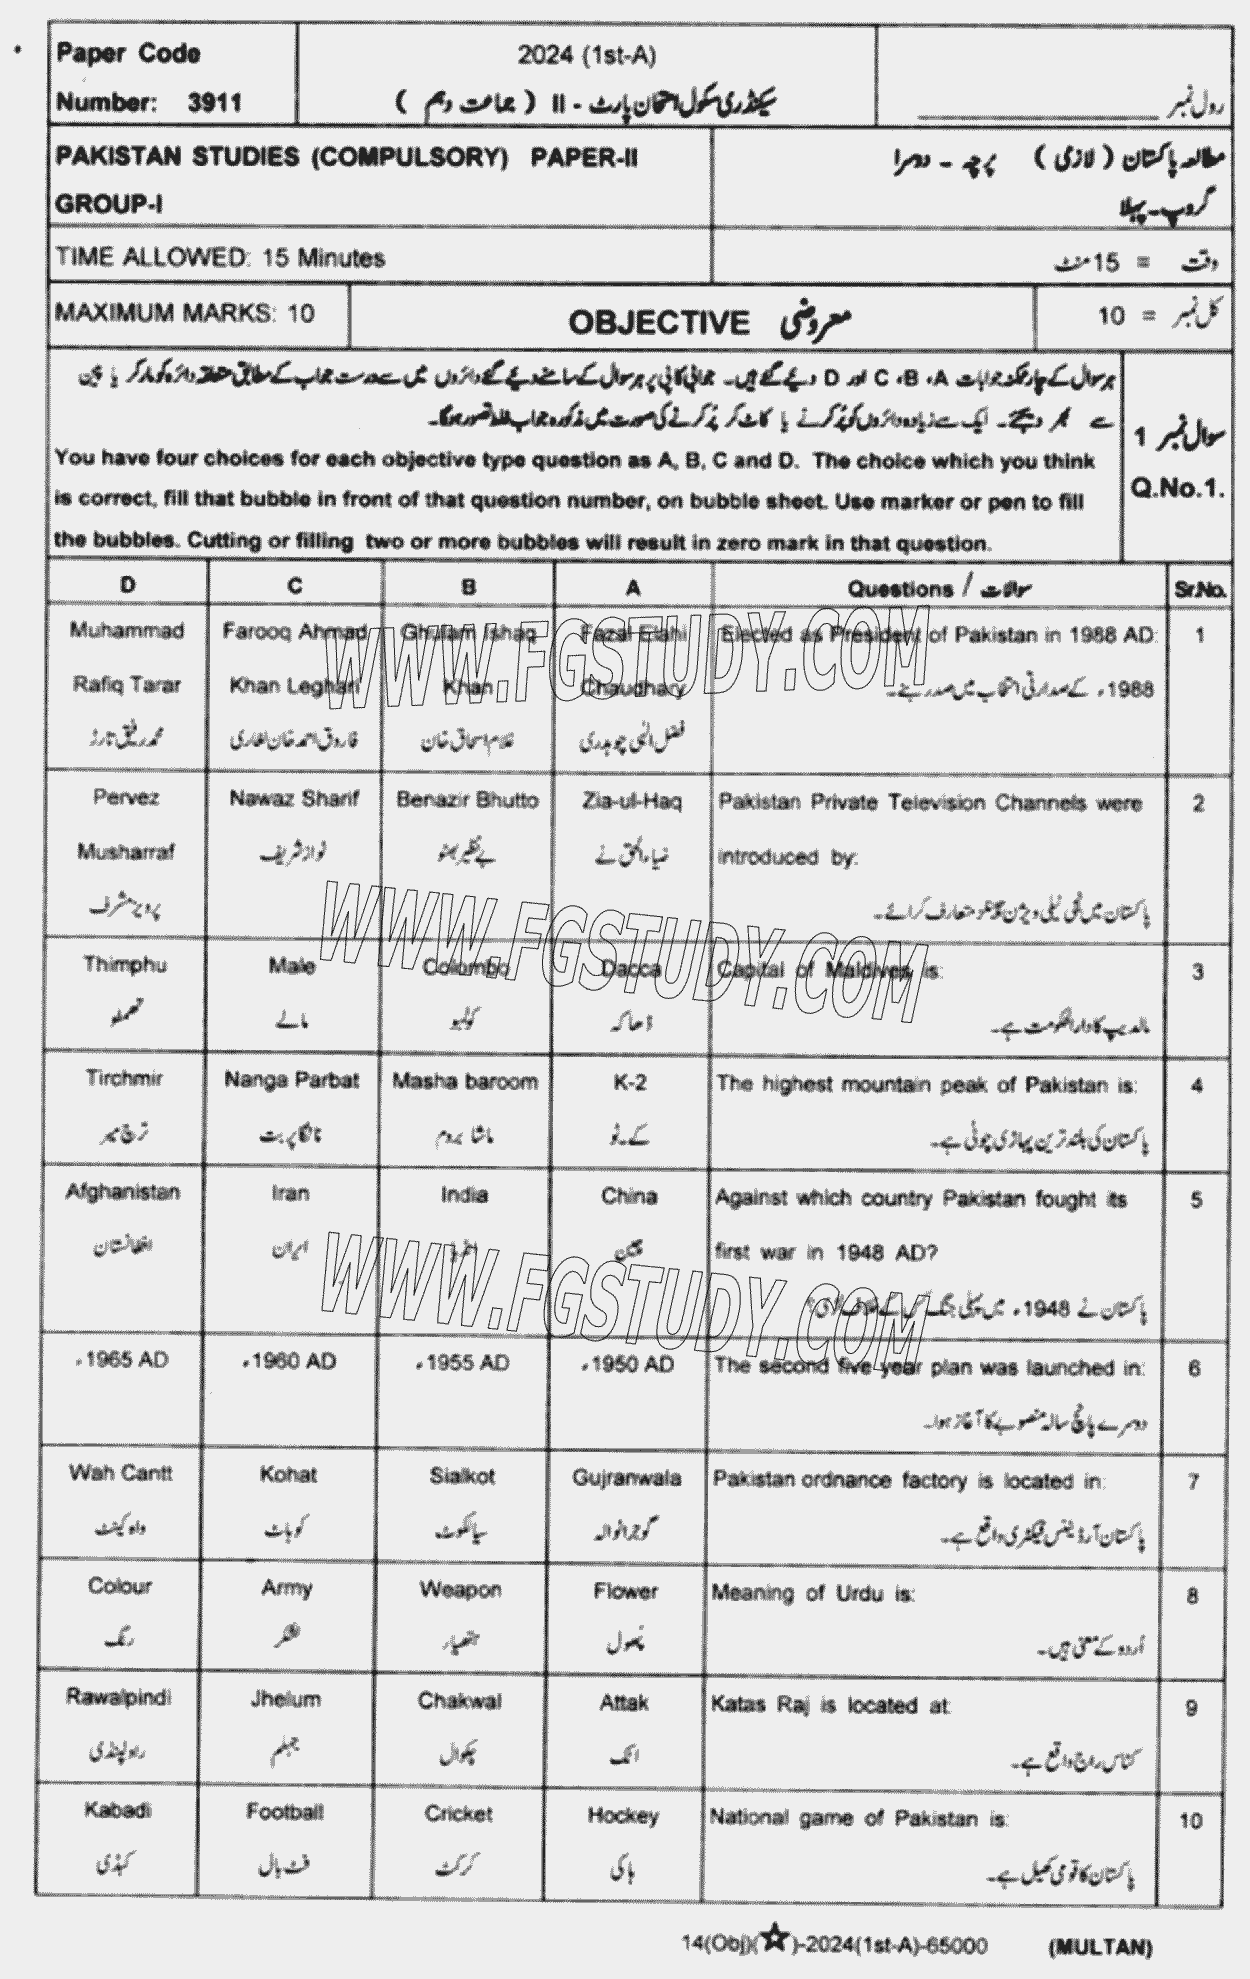 Paper Code
Number: 3911
2024 (1st-A)
سیکنڈری سکول امتحان پارٹ - II ( جماعت دہم )
رول نمبر
PAKISTAN STUDIES (COMPULSORY) PAPER-II
GROUP-I
مطالعہ پاکستان ( لازمی ) پرچہ - دوسرا
گروپ - پہلا
TIME ALLOWED: 15 Minutes
وقت = 15 منٹ
MAXIMUM MARKS: 10
OBJECTIVE معروضی
کل نمبر = 10
سوال نمبر 1
Q.No.1.
ہر سوال کے چار ممکنہ جوابات A، B، C اور D دیئے گئے ہیں۔ جوابی کاپی پر ہر سوال کے سامنے دیئے گئے دائروں میں سے درست جواب کے مطابق متعلقہ دائرہ کو مارکر یا پین
سے بھر دیجئے۔ ایک سے زیادہ دائروں کو پُر کرنے یا کاٹ کر پُر کرنے کی صورت میں مذکورہ جواب غلط تصور ہوگا۔
You have four choices for each objective type question as A, B, C and D. The choice which you think
is correct, fill that bubble in front of that question number, on bubble sheet. Use marker or pen to fill
the bubbles. Cutting or filling two or more bubbles will result in zero mark in that question.
D C B A Questions / سوالات Sr.No.
Muhammad Farooq Ahmad Ghulam Ishaq Fazal Elahi Elected as President of Pakistan in 1988 AD: 1
Rafiq Tarar Khan Leghari Khan Chaudhary 1988ء کے صدارتی انتخاب میں صدر بنے۔
محمد رفیق تارڑ فاروق احمد خان لغاری غلام اسحاق خان فضل الٰہی چوہدری
WWW.FGSTUDY.COM
Pervez Nawaz Sharif Benazir Bhutto Zia-ul-Haq Pakistan Private Television Channels were 2
Musharraf نواز شریف بے نظیر بھٹو ضیاء الحق نے introduced by:
پرویز مشرف پاکستان میں نجی ٹیلی ویژن چینلز متعارف کرائے۔
WWW.FGSTUDY.COM
Thimphu Male Colombo Dacca Capital of Maldives is: 3
تھمفو مالے کولمبو ڈھاکہ مالدیپ کا دارالحکومت ہے۔
Tirchmir Nanga Parbat Masha baroom K-2 The highest mountain peak of Pakistan is: 4
ترچ میر نانگا پربت ماشا بروم کے۔ٹو پاکستان کی بلند ترین پہاڑی چوٹی ہے۔
Afghanistan Iran India China Against which country Pakistan fought its 5
افغانستان ایران انڈیا چین first war in 1948 AD?
پاکستان نے 1948ء میں پہلی جنگ کس کے خلاف لڑی؟
WWW.FGSTUDY.COM
1965 AD، 1960 AD، 1955 AD، 1950 AD، The second five year plan was launched in: 6
دوسرے پانچ سالہ منصوبے کا آغاز ہوا۔
Wah Cantt Kohat Sialkot Gujranwala Pakistan ordnance factory is located in: 7
واہ کینٹ کوہاٹ سیالکوٹ گوجرانوالہ پاکستان آرڈیننس فیکٹری واقع ہے۔
Colour Army Weapon Flower Meaning of Urdu is: 8
رنگ لشکر ہتھیار پھول اُردو کے معنی ہیں۔
Rawalpindi Jhelum Chakwal Attak Katas Raj is located at: 9
راولپنڈی جہلم چکوال اٹک کٹاس راج واقع ہے۔
Kabadi Football Cricket Hockey National game of Pakistan is: 10
کبڈی فٹ بال کرکٹ ہاکی پاکستان کا قومی کھیل ہے۔
14(Obj)(☆)-2024(1st-A)-65000 (MULTAN)